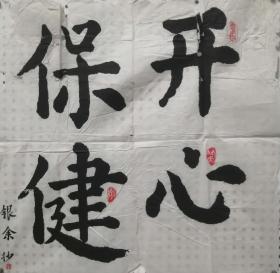 开心
保健
银余抄